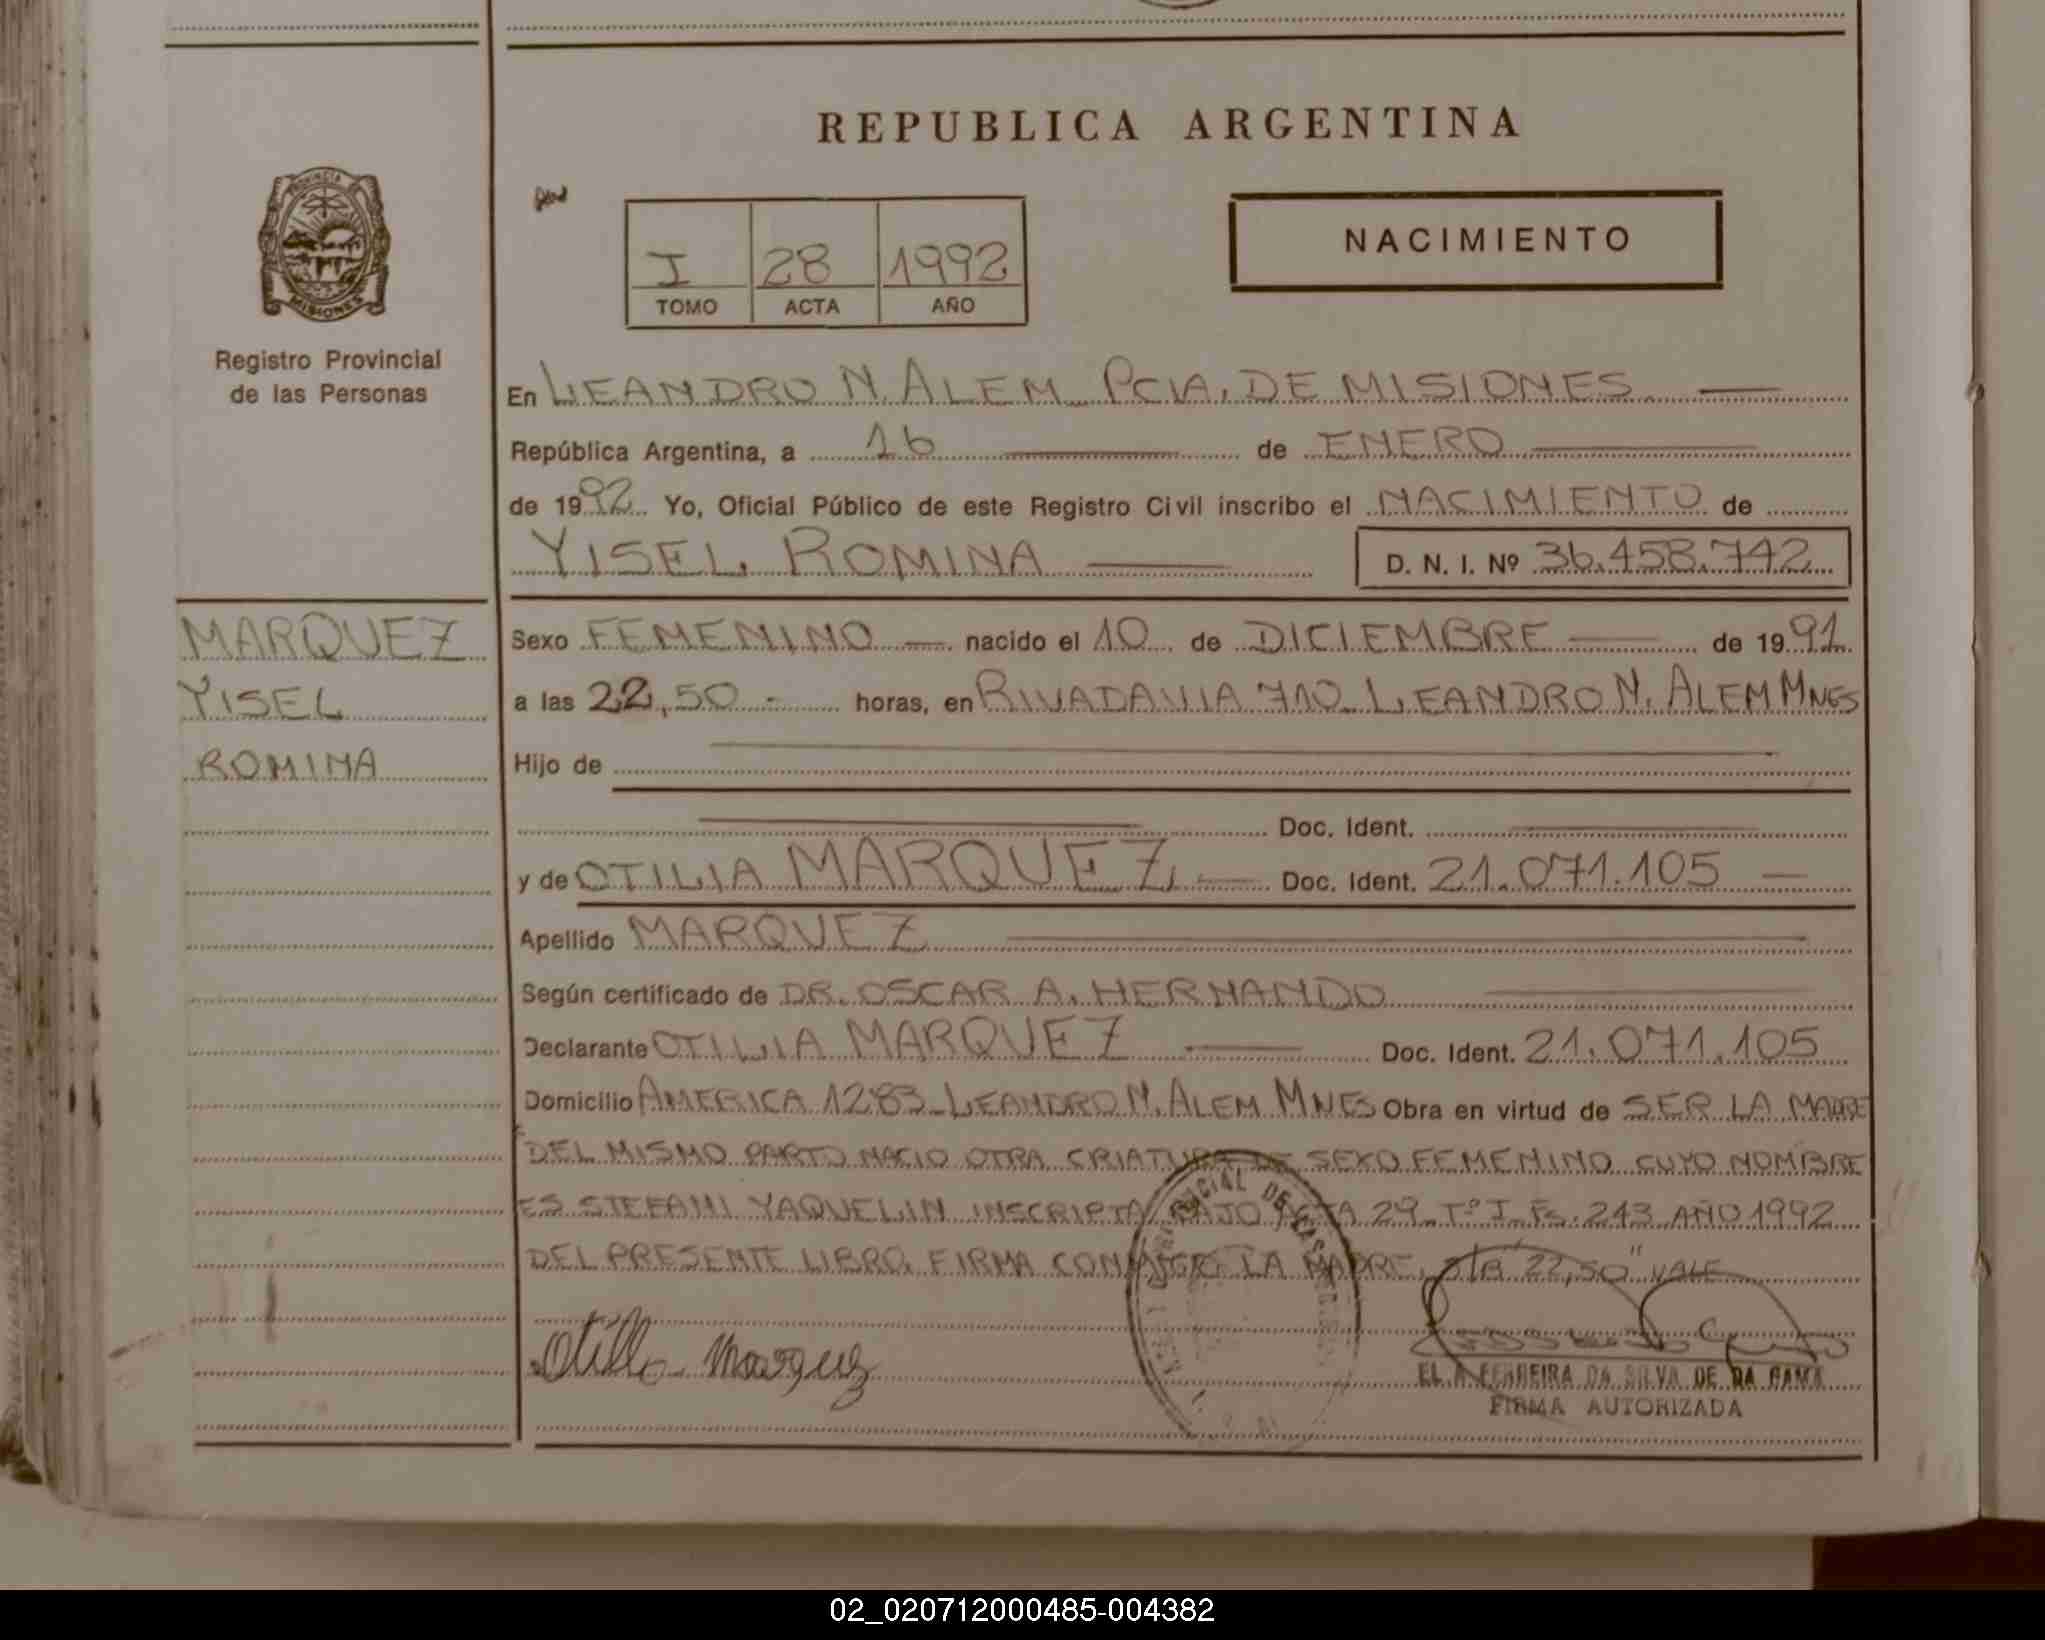 REPUBLICA ARGENTINA
PROVINCIA DE MISIONES
Registro Provincial
de las Personas
I 28 1992
TOMO ACTA AÑO
NACIMIENTO
En LEANDRO N. ALEM PCIA. DE MISIONES
República Argentina, a 16 de ENERO
de 1992 Yo, Oficial Público de este Registro Civil inscribo el NACIMIENTO de
YISEL ROMINA D. N. I. Nº 36.458.742
MARQUEZ
YISEL
ROMINA
Sexo FEMENINO nacido el 10 de DICIEMBRE de 1991
a las 22,50 horas, en RIVADAVIA 710 LEANDRO N. ALEM MNES
Hijo de
Doc. Ident.
y de OTILIA MARQUEZ Doc. Ident. 21.071.105
Apellido MARQUEZ
Según certificado de DR. OSCAR A. HERNANDO
Declarante OTILIA MARQUEZ Doc. Ident. 21.071.105
Domicilio AMERICA 1283 LEANDRO N. ALEM MNES Obra en virtud de SER LA MADRE
DEL MISMO PARTO NACIO OTRA CRIATURA DE SEXO FEMENINO CUYO NOMBRE
ES STEFANI YAQUELIN INSCRIPTA BAJO ACTA 29 Tº I Fº 243 AÑO 1992
DEL PRESENTE LIBRO. FIRMA CONMIGO LA MADRE. S/B "22,50" VALE
Otilia Marquez
FERREIRA DA SILVA DE DA GAMA
FIRMA AUTORIZADA
02_020712000485-004382